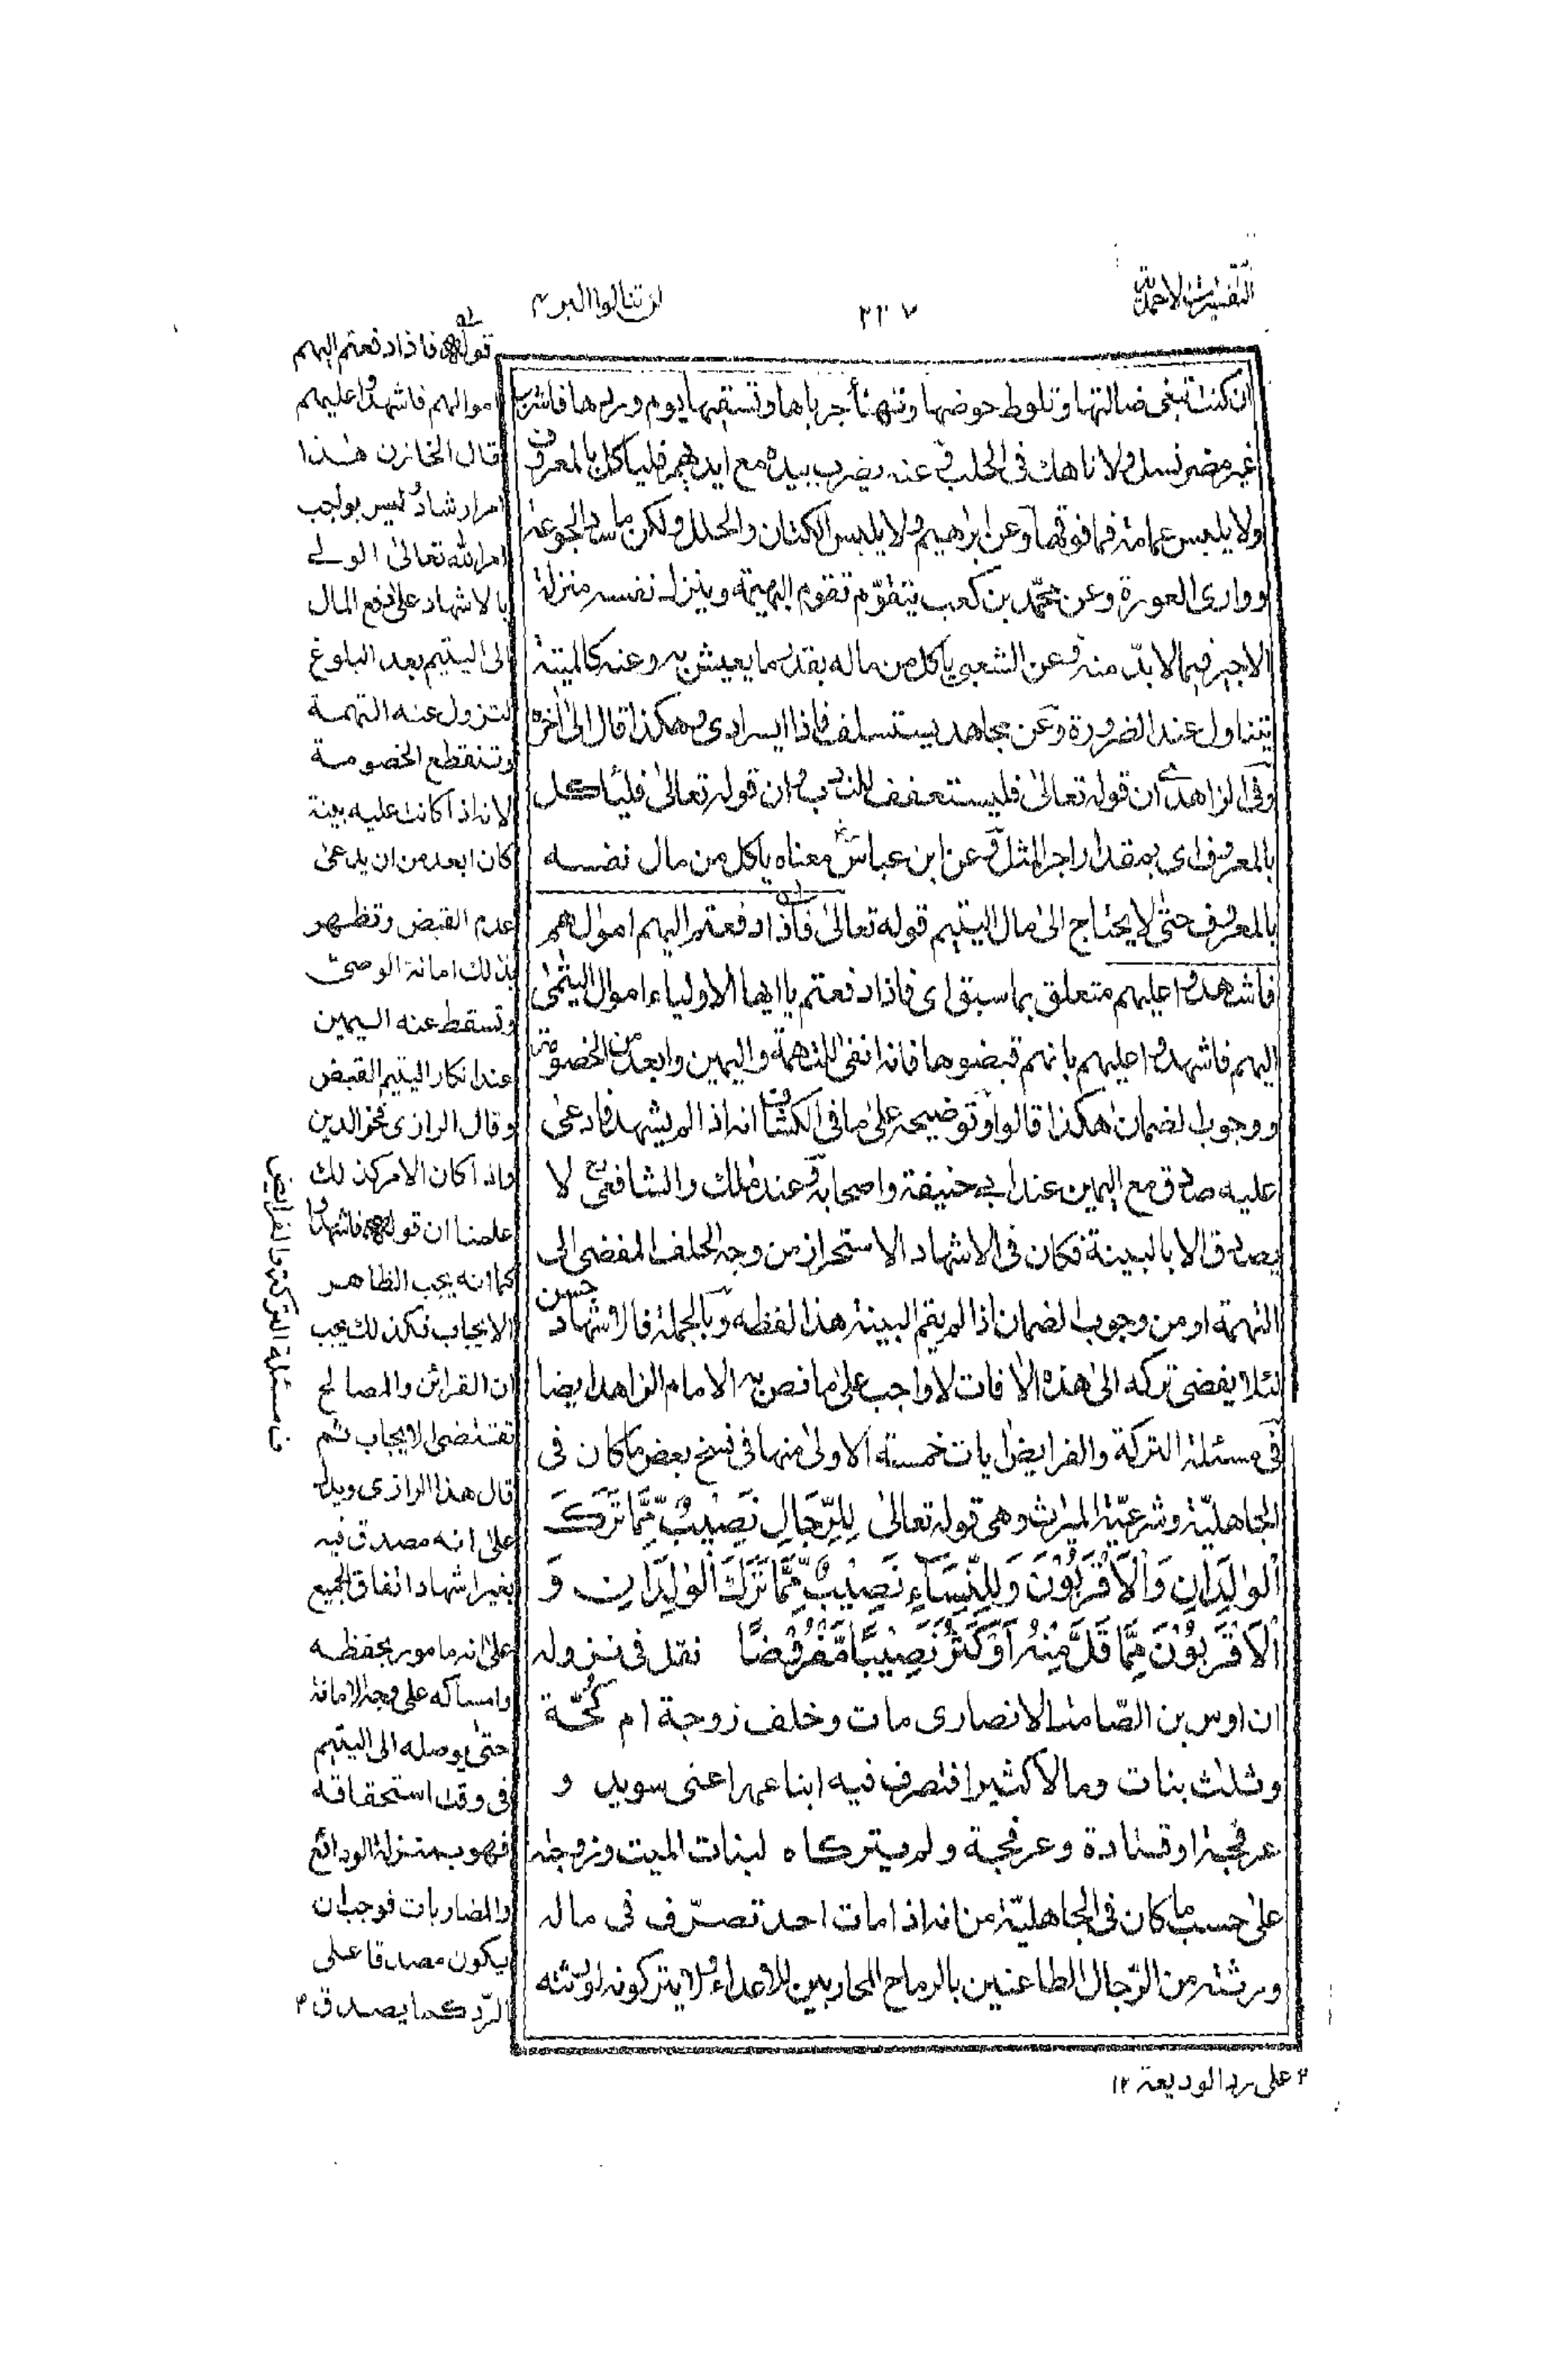 التفسيرات الاحمدية
٢٣٧
لن تنالوا البر ٤
ان كنت تبغى ضالتها وتلوط حوضها وتهنأ جرباها وتسقيها يوم وردها فاشرب
غير مضر نسل ولا ناهك فى الحلب وعنه يضرب بيده مع ايديهم فلياكل بالمعروف
ولا يلبس عمامة فما فوقها وعن ابراهيم ولا يلبس الكتان والحلل ولكن ما سد الجوعة
ووارى العورة وعن محمّد بن كعب يتقوّم تقوم البهيمة وينزل نفسه منزلة
الاجير فيما لا بدّ منه وعن الشعبى ياكل من ماله بقدر ما يعيش به وعنه كالميتة
يتناول عند الضرورة وعن مجاهد يستسلف فاذا ايسر ادى وهكذا قال الى اخره
وفى الزاهدى ان قوله تعالىٰ فليستعفف للندب وان قوله تعالىٰ فلياكل
بالمعروف اى بمقدار اجر المثل وعن ابن عباس معناه ياكل من مال نفسه
بالمعروف حتى لا يحتاج الى مال اليتيم قوله تعالىٰ فاذا دفعتم اليهم اموالهم
فاشهدوا عليهم متعلق بما سبق اى فاذا دفعتم يا ايها الاولياء اموال اليتٰمٰى
اليهم فاشهدوا عليهم بانهم قبضوها فانه انفى للتهمة واليمين وابعد من الخصومة
ووجوب الضمان هكذا قالوا وتوضيحه على ما فى الكشاف انه اذا لم يشهد فادعى
عليه صدق مع اليمين عند ابى حنيفة واصحابه وعند مٰلك والشافعى لا
يصدق الا بالبينة فكان فى الاشهاد الاستحراز من وجه الحلف المفضى الى
التهمة او من وجوب الضمان اذا لم يقم البينة هذا لفظه وبالجملة فالاشهاد حسن
لئلا يفضى تركه الى هذه الاٰفات لا واجب على ما نص به الامام الزاهد ايضا
فى مسئلة التركة والفرايض ايات خمسة الاولى منها فى نسخ بعض ما كان فى
الجاهليّة وشرعيّة الميراث وهى قوله تعالىٰ لِلرِّجَالِ نَصِيْبٌ مِّمَّا تَرَكَ
الْوَالِدَانِ وَالْاَقْرَبُوْنَ وَلِلنِّسَآءِ نَصِيْبٌ مِّمَّا تَرَكَ الْوَالِدَانِ وَ
الْاَقْرَبُوْنَ مِمَّا قَلَّ مِنْهُ اَوْ كَثُرَ نَصِيْبًا مَّفْرُوْضًا نقل فى نزوله
ان اوس بن الصّامت الانصارى مات وخلف زوجة ام كُحّة
وثلث بنات ومالا كثيرا فتصرف فيه ابنا عمه اعنى سويد و
عرفجة او قتادة وعرفجة ولم يتركاه لبنات الميت وزوجته
على حسب ما كان فى الجاهليّة من انه اذا مات احد تصرّف فى ماله
ورثته من الرّجال الطاعنين بالرماح المحاربين للاعداء ولا يتركونه لورثته
قوله فاذا دفعتم اليهم
اموالهم فاشهدوا عليهم
قال الخازن هٰذا
امر ارشاد ليس بواجب
امر الله تعالىٰ الولى
بالاشهاد على دفع المال
الى اليتيم بعد البلوغ
لتزول عنه التهمة
وتنقطع الخصومة
لانه اذا كانت عليه بينة
كان ابعد من ان يدعى
عدم القبض وتظهر
بذلك امانة الوصى
وتسقط عنه اليمين
عند انكار اليتيم القبض
وقال الرازى فخر الدين
واذا كان الامر كذلك
علمنا ان قوله فاشهدوا
كما انه يجب الظاهر
الايجاب فكذلك يجب
ان القرائن والمصالح
تقتضى الايجاب ثم
قال هذا الرازى ويدل
على انه مصدق فيه
بغير اشهاد اتفاق الجميع
على انه مامور بحفظه
وامساكه على وجه الامانة
حتى يوصله الى اليتيم
فى وقت استحقاقه
فهو بمنزلة الودائع
والمضاربات فوجب ان
يكون مصدقا على
الرد كما يصدق ٣
ف مسئلة التركة والفرايض
٣ على رد الوديعة ١٢